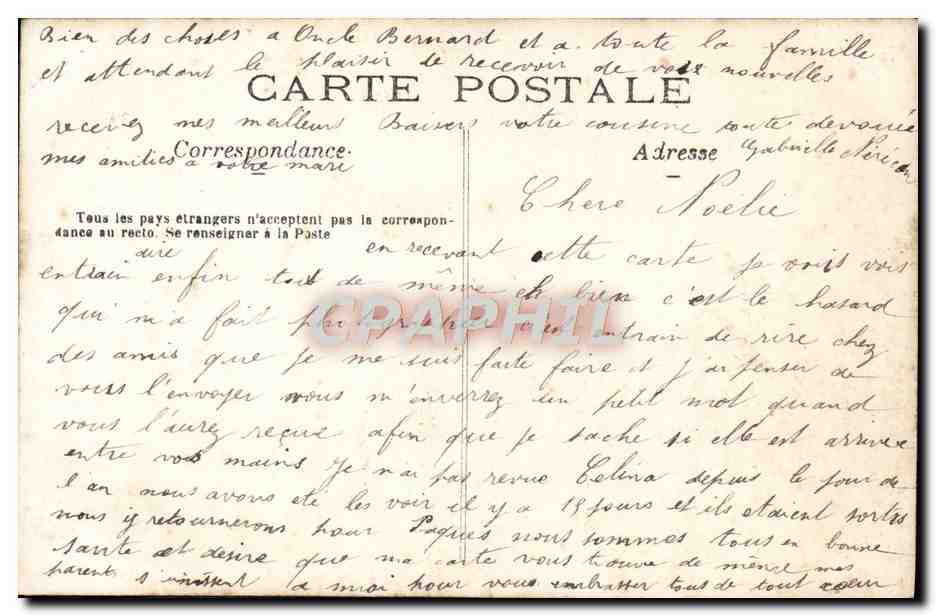 Bien des choses a Oncle Bernard et a toute la famille
et attendant le plaisir de recevoir de vos nouvelles
CARTE POSTALE
recevez mes meilleurs Baisers votre cousine toute devouée
Gabrielle
mes amities a votre mari
Correspondance.
Adresse
Chere Noëlie
Tous les pays étrangers n'acceptent pas la correspon-
dance au recto. Se renseigner à la Poste
en recevant cette carte je vois vois
dire
entrain enfin tout de même eh bien c'est le hasard
qui m'a fait photographier c'est entrain de rire chez
des amis que je me suis faite faire et j'ai penser de
vous l'envoyer vous m'enverrez un petit mot quand
vous l'aurez reçue afin que je sache si elle est arrivee
entre vos mains je n'ai pas revue Celina depuis le jour de
l an nous avons eté les voir il y a 15 jours et ils etaient sortis
nous y retournerons pour Paques nous sommes tous en bonne
santé et desire que ma carte vous trouve de même mes
parents s'unissent a moi pour vous embrasser tous de tout coeur
CPAPHIL